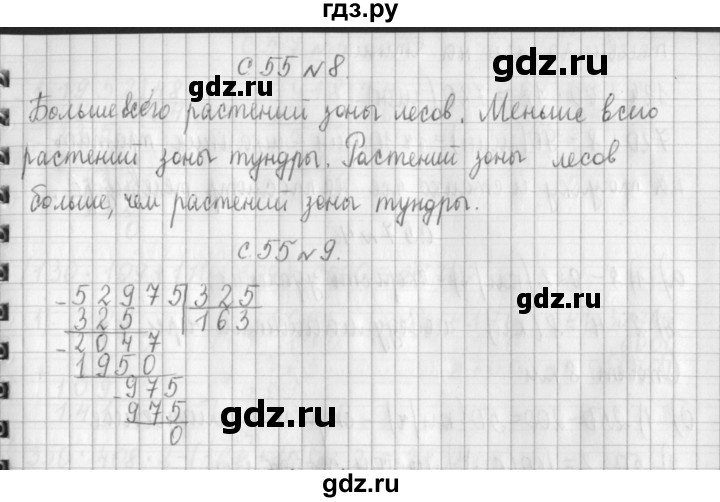 гдз.ру
с 55 №8.
гдз.ру
гдз.ру
Больше всего растений зоны лесов. Меньше всего
растений зоны тундры. Растений зоны лесов
больше, чем растений зоны тундры.
с 55 №9.
-52975|325
325 163
-2047
1950
-975
975
0
гдз.ру
гдз.ру